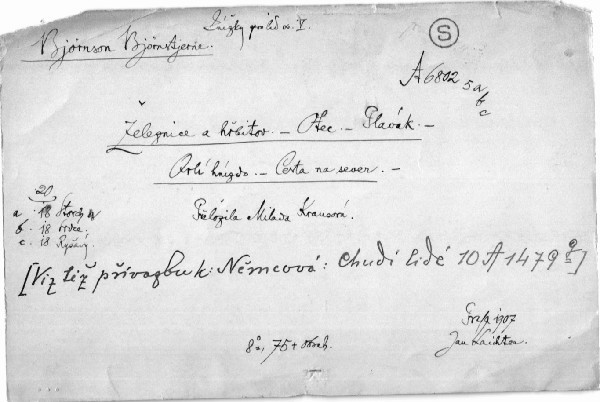 Knížky pro lid č. V.
Bjørnson Bjørnstjerne.
S
A 6802 5 a
b
c
Železnice a hřbitov. – Otec. – Plavák. –
Orlí hnízdo. – Cesta na sever. –
20
a . 18
b . 18 Srdce,
c . 18
Přeložila Milada Krausová.
[Viz též přívazbu k: Němcová: Chudí lidé 10 A 1479 ]
Praha 1907
Jan Laichter.
8°, 75 + obsah.